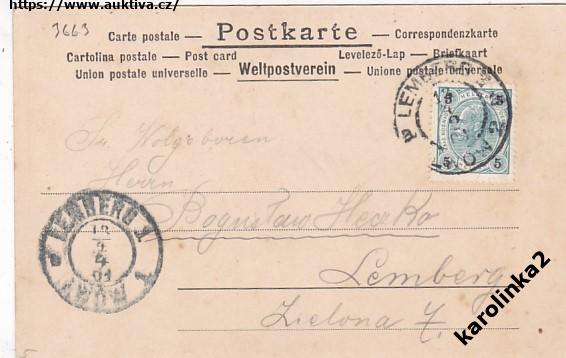 https://www.auktiva.cz/
3663
Carte postale — Postkarte — Correspondenzkarte
Cartolina postale — Post card Levelező-Lap — Briefkaart
Union postale universelle — Weltpostverein — Unione postale universale
Sr. Wolgeboren
Herrn
Bogusław Hecrko
Lemberg
Zielona 7.
LEMBERG
5 5
5 5
LEMBERG 1
LWÓW
karolinka2